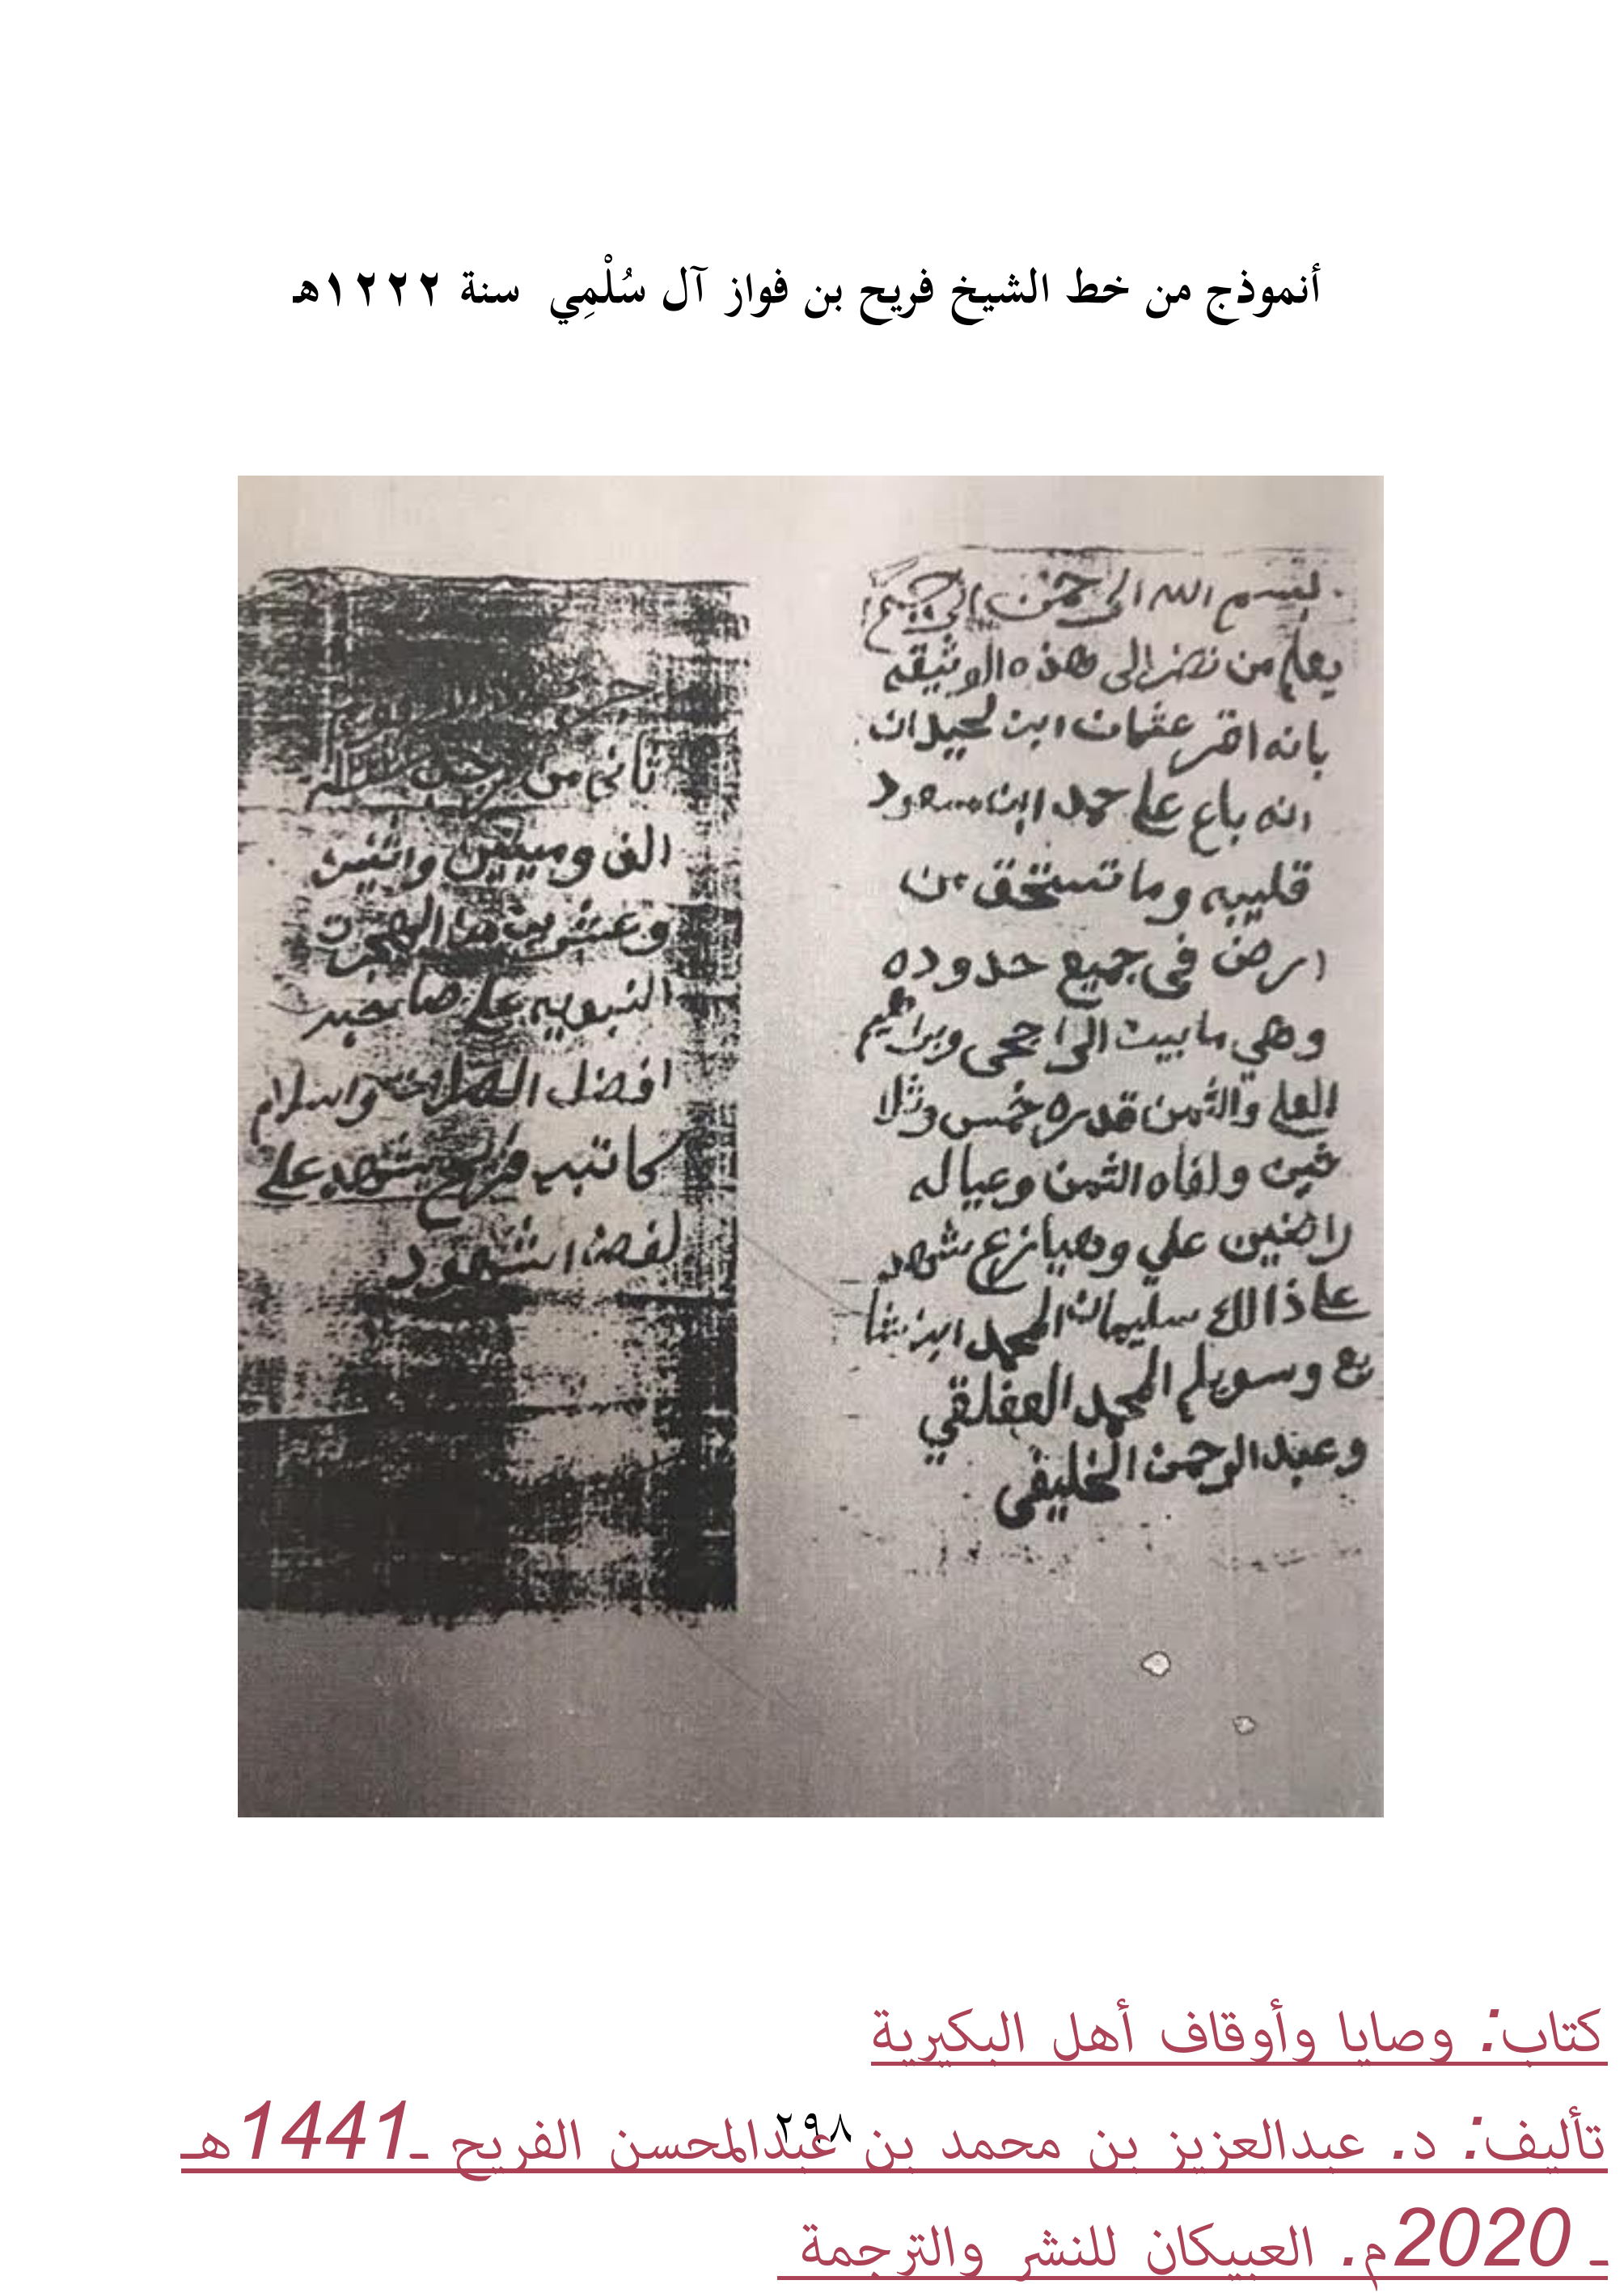 أنموذج من خط الشيخ فريح بن فواز آل سُلْمِي سنة ١٢٢٢هـ
بسم الله الرحمن الرحيم
يعلم من نضر الى هذه الوثيقه
بانه اقر عثمان ابن لحيدان
انه باع على حمد ابن سعود
قليبه وما تستحق من
ارض في جميع حدوده
وهي ما بين الراجحى وبراهيم
العلي والثمن قدره خمس وثلا
ثين ولفاه الثمن وعياله
راضين علي وهيا نزع شهد
على ذالك سليمان المحمد ابن شا
يع وسويلم المحمد العفلقي
وعبد الرحمن الخليفي
ثاني من رجب
الف وميتين واثنين
وعشرين من الهجرت
النبويه على صاحبه
افضل الصلات واسلام
كاتبه فريح شهد على
لفض الشهود
كتاب: وصايا وأوقاف أهل البكيرية
تأليف: د. عبدالعزيز بن محمد بن عبدالمحسن الفريح ـ1441هـ
ـ 2020م. العبيكان للنشر والترجمة
٢٩٨